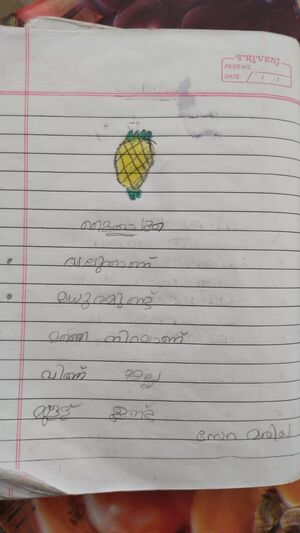 TRIVENI
PAGE NO.
DATE / /
കൈതച്ചക്ക
വലുതാണ്
മധുരമുണ്ട്
മഞ്ഞ നിറമാണ്
വിത്ത് ഇല്ല
മുള്ള് ഉണ്ട്
സേറ മരിയ